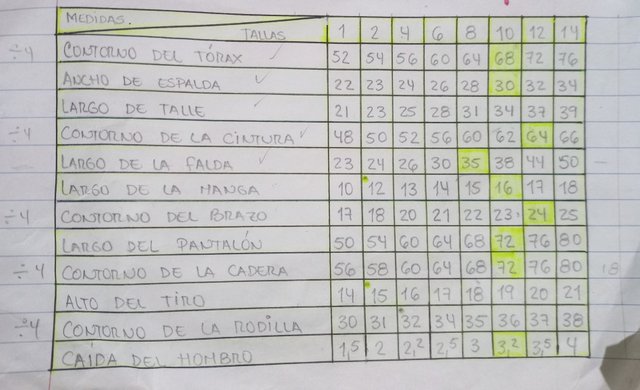 MEDIDAS. TALLAS 1 2 4 6 8 10 12 14
÷4 CONTORNO DEL TÓRAX ✓ 52 54 56 60 64 68 72 76
ANCHO DE ESPALDA ✓ 22 23 24 26 28 30 32 34
LARGO DE TALLE ✓ 21 23 25 28 31 34 37 39
÷4 CONTORNO DE LA CINTURA ✓ 48 50 52 56 60 62 64 66
LARGO DE LA FALDA ✓ 23 24 26 30 35 38 44 50
LARGO DE LA MANGA 10 12 13 14 15 16 17 18
÷4 CONTORNO DEL BRAZO 17 18 20 21 22 23 24 25
LARGO DEL PANTALÓN 50 54 60 64 68 72 76 80
÷4 CONTORNO DE LA CADERA 56 58 60 64 68 72 76 80 18
ALTO DEL TIRO 14 15 16 17 18 19 20 21
÷4 CONTORNO DE LA RODILLA 30 31 32 34 35 36 37 38
CAÍDA DEL HOMBRO 1,5 2 2,2 2,5 3 3,2 3,5 4